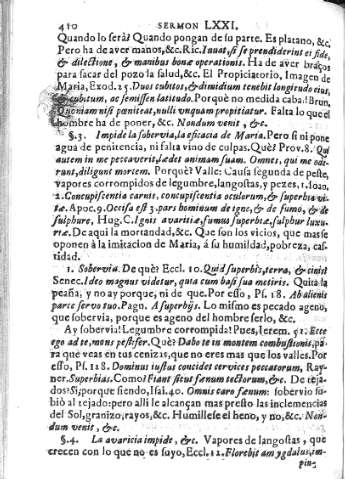 410 SERMON LXXI.
Quando lo serà? Quando pongan de su parte. Es platano, &c.
Pero ha de aver manos, &c. Ric. Iuuat, si se prendiderint ei fide,
& dilectione, & manibus bonæ operationis. Ha de aver braços
para sacar del pozo la salud, &c. El Propiciatorio, Imagen de
Maria, Exod. 25. Duos cubitos, & dimidium tenebit longitudo eius,
& cubitum, ac semissen latitudo. Porquè no medida caba? Brun.
Quoniam nisi peniteat, nulli vnquam propitiatur. Falta lo que el
hombre ha de poner, &c. Nondum venit, &c.
§.3. Impide la sobervia, la eficacia de Maria. Pero si ni pone
agua de penitencia, ni falta vino de culpas. Què? Prov. 8. Qui
autem in me peccaverit, lædet animam suam. Omnes, qui me ode-
runt, diligunt mortem. Porquè? Valle: Causa segunda de peste,
vapores corrompidos de legumbre, langostas, y pezes, 1. Ioan.
2. Concupiscentia carnis, concupiscentia oculorum, & superbia vi-
tæ. Apoc. 9. Occisa est 3. pars hominum de igne, & de fumo, & de
sulphure, Hug. C. Ignis avaritiæ, fumus superbiæ, sulphur luxu-
riæ. De aqui la mortandad, &c. Que son los vicios, que mas se
oponen à la imitacion de Maria, á su humildad, pobreza, cas-
tidad.
1. Sobervia. De què? Eccl. 10. Quid superbis, terra, & cinis?
Senec. Ideo magnus videtur, quia cum basi sua metiris. Quita la
peaña, y no ay porque, ni de que. Por esso, Ps. 18. Ab alienis
parce servo tuo. Pagn. A superbijs. Lo mismo es pecado ageno,
que sobervia, porque es ageno del hombre serlo, &c.
Ay sobervia? Legumbre corrompida? Pues, Ierem. 51. Ecce
ego ad te, mons pestifer. Què? Dabo te in montem combustionis, pa-
ra que veas en tus cenizas, que no eres mas que los valles. Por
esso, Ps. 128. Dominus iustus concidet cervices peccatorum, Ray-
ner. Superbias. Como? Fiant sicut fænum tectorum, &c. De teja-
dos? Si, porque siendo, Isai. 40. Omnis caro fænum: sobervio su-
biò al tejado: pero alli le alcançan mas presto las inclemencias
del Sol, granizo, rayos, &c. Humillese el heno, y no, &c. Non-
dum venit, &c.
§.4. La avaricia impide, &c. Vapores de langostas, que
crecen con lo que no es suyo, Eccl. 12. Florebit amygdalus, im-
pin-